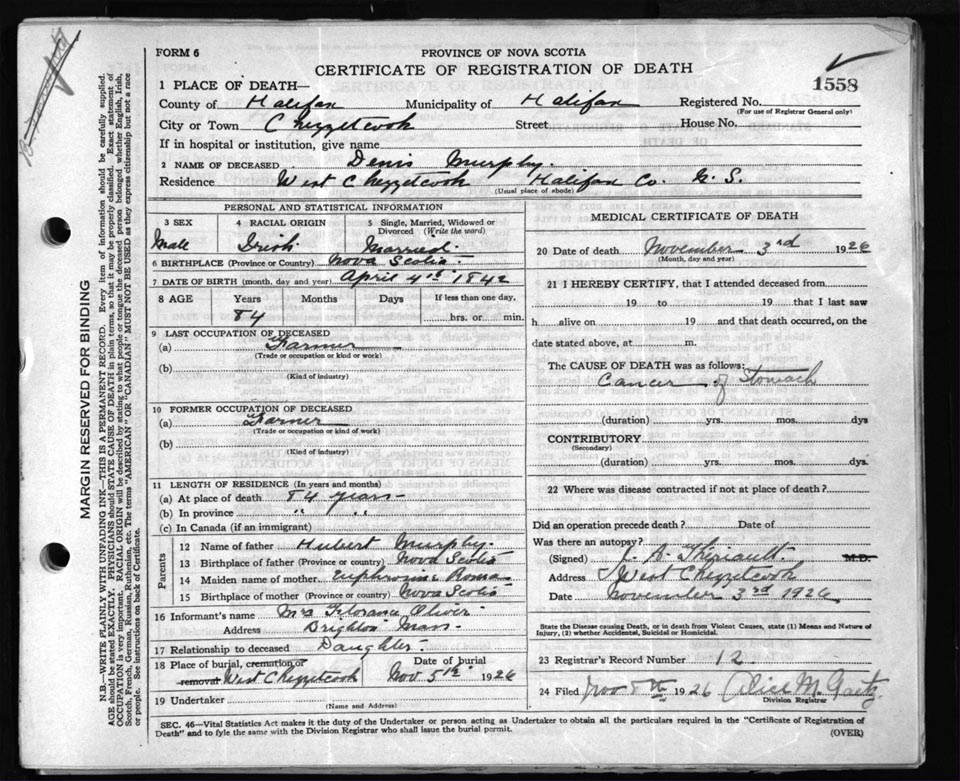 FORM 6
PROVINCE OF NOVA SCOTIA
CERTIFICATE OF REGISTRATION OF DEATH
1558
1 PLACE OF DEATH—
County of Halifax Municipality of Halifax Registered No.
(For use of Registrar General only)
City or Town Chezzetcook Street House No.
If in hospital or institution, give name
2 NAME OF DECEASED Denis Murphy.
Residence West Chezzetcook Halifax Co. N. S.
(Usual place of abode)
PERSONAL AND STATISTICAL INFORMATION
3 SEX 4 RACIAL ORIGIN 5 Single, Married, Widowed or Divorced (Write the word)
Male Irish Married.
6 BIRTHPLACE (Province or Country) Nova Scotia
7 DATE OF BIRTH (month, day and year) April 4th 1842
8 AGE Years Months Days If less than one day,
84 hrs. or min.
9 LAST OCCUPATION OF DECEASED
(a) Farmer
(Trade or occupation or kind or work)
(b)
(Kind of industry)
10 FORMER OCCUPATION OF DECEASED
(a) Farmer
(Trade or occupation or kind or work)
(b)
(Kind of industry)
11 LENGTH OF RESIDENCE (In years and months)
(a) At place of death 84 years
(b) In province " "
(c) In Canada (if an immigrant)
Parents
12 Name of father Hubert Murphy.
13 Birthplace of father (Province or Country) Nova Scotia
14 Maiden name of mother
15 Birthplace of mother (Province or Country) Nova Scotia
16 Informant's name Mrs Florance Oliver
Address Brighton Mass
17 Relationship to deceased Daughter
18 Place of burial, cremation or Date of burial
removal West Chezzetcook Nov 5th 1926
19 Undertaker
(Name and Address)
MEDICAL CERTIFICATE OF DEATH
20 Date of death November 3rd 1926
(Month, day and year)
21 I HEREBY CERTIFY, that I attended deceased from
19 to 19 that I last saw
h alive on 19 and that death occurred, on the
date stated above, at m.
The CAUSE OF DEATH was as follows:
Cancer of Stomach
(duration) yrs. mos. dys
CONTRIBUTORY
(Secondary)
(duration) yrs. mos. dys.
22 Where was disease contracted if not at place of death?
Did an operation precede death? Date of
Was there an autopsy?
(Signed) J. A. Theriault. M.D.
Address West Chezzetcook
Date November 3rd 1926
State the Disease causing Death, or in death from Violent Causes, state (1) Means and Nature of
Injury, (2) whether Accidental, Suicidal or Homicidal.
23 Registrar's Record Number 12
24 Filed Nov 8th 1926 Alice M Gaetz
Division Registrar
SEC. 46—Vital Statistics Act makes it the duty of the Undertaker or person acting as Undertaker to obtain all the particulars required in the "Certificate of Registration of
Death" and to fyle the same with the Division Registrar who shall issue the burial permit.
(OVER)
MARGIN RESERVED FOR BINDING
N.B.—WRITE PLAINLY WITH UNFADING INK—THIS IS A PERMANENT RECORD. Every item of information should be carefully supplied.
AGE should be stated EXACTLY. PHYSICIANS should STATE CAUSE OF DEATH in plain terms, so that it may be properly classified. Exact statement of
OCCUPATION is very important. RACIAL ORIGIN will be described by stating to what people or tongue the deceased person belonged whether English, Irish,
Scotch, French, German, Russian, Ruthenian, etc. The terms "AMERICAN" OR "CANADIAN" MUST NOT BE USED as they express citizenship but not a race
or people. See instructions on back of Certificate.